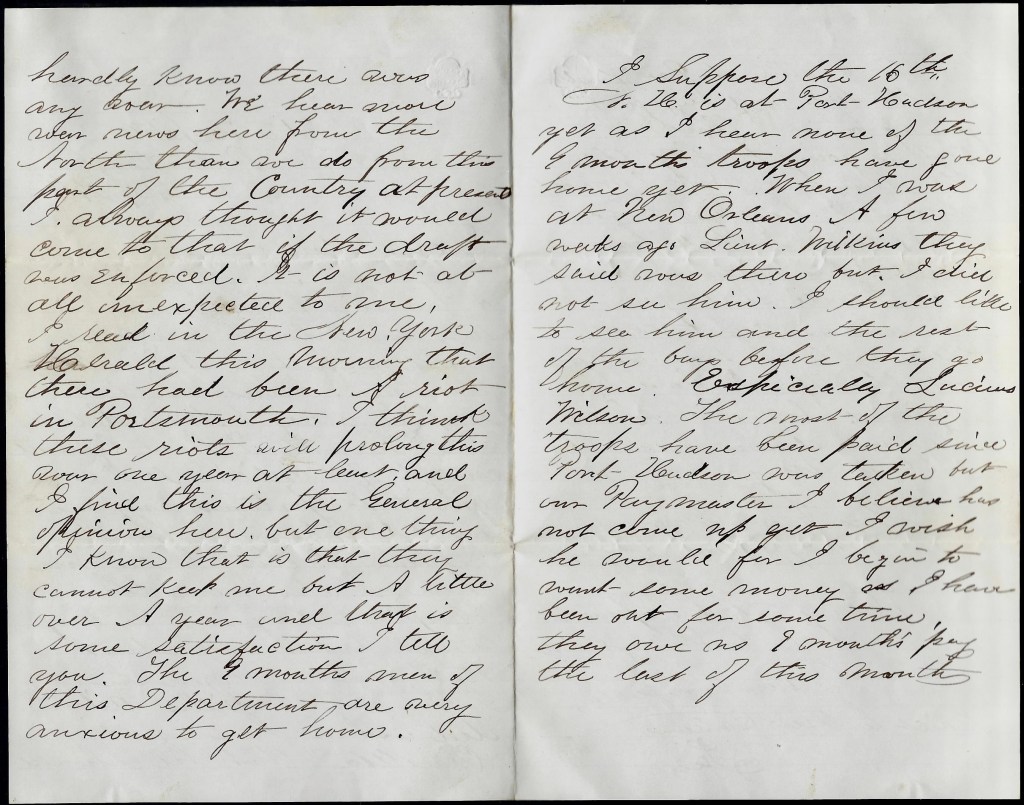 hardly Know there was
any war. We hear more
war news here from the
North than we do from this
part of the Country at present
I always thought it would
come to that if the draft
was Enforced. It is not at
all unexpected to me,
I read in the New York
Harald this Morning that
there had been A riot
in Portsmouth. I think
these riots will prolong this
war one year at least, and
I find this is the General
opinion here. but one thing
I Know that is that they
cannot Keep me but A little
over A year and that is
some satisfaction I tell
you. The 9 months men of
this Department are very
anxious to get home.
I Suppose the 16th
N. H. is at Port Hudson
yet as I hear none of the
9 month troops have gone
home yet. When I was
at New Orleans A few
weeks ago Lieut. Wilkins they
said was there but I did
not see him. I should like
to see him and the rest
of the boys before they go
home. Especially Lucius
Wilson. The most of the
Troops have been paid since
Port Hudson was taken but
our Paymaster I believe has
not come up yet I wish
he would for I begin to
want some money as I have
been out for some time,
they owe us 9 month's pay
the last of this month